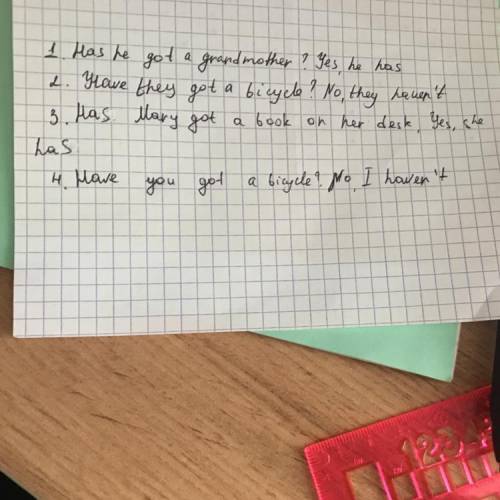 1. Has he got a grandmother? Yes, he has
2. Have they got a bicycle? No, they haven't
3. Has Mary got a book on her desk. Yes, she
has
4. Have you got a bicycle? No, I haven't
123